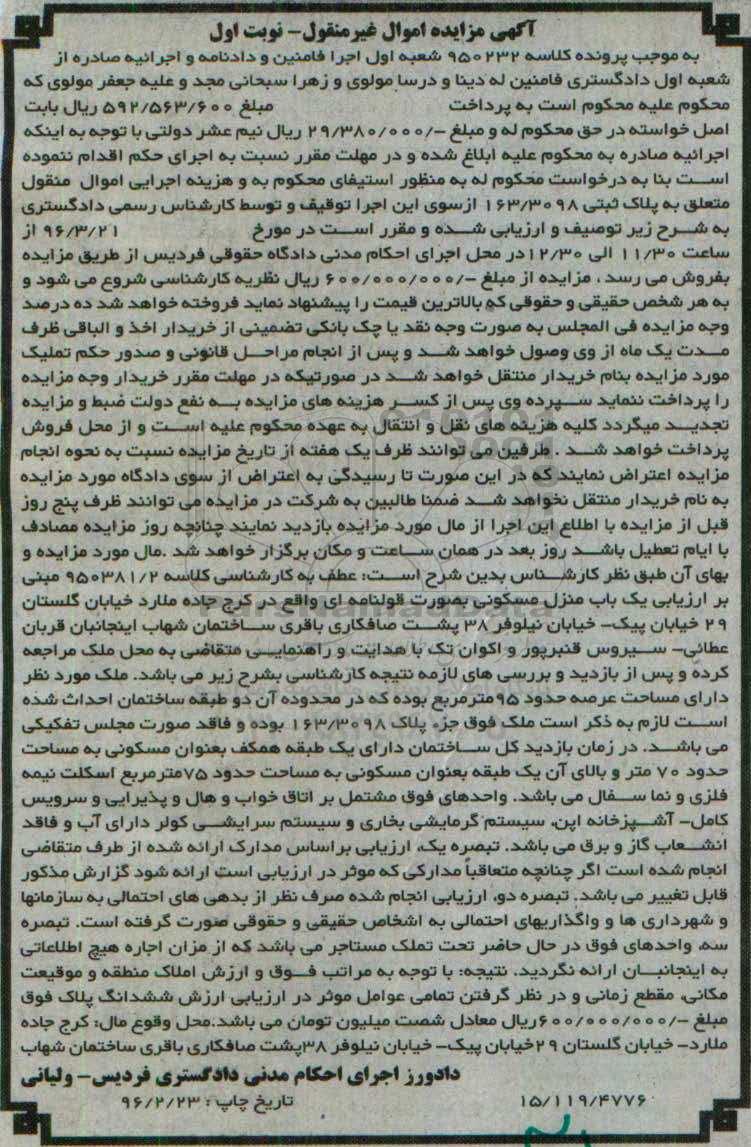 آگهی مزایده اموال غیرمنقول- نوبت اول
به موجب پرونده کلاسه ۹۵۰۲۳۲ شعبه اول اجرا فامنین و دادنامه و اجرائیه صادره از
شعبه اول دادگستری فامنین له دینا و درسا مولوی و زهرا سبحانی مجد و علیه جعفر مولوی که
محکوم علیه محکوم است به پرداخت مبلغ ۵۹۲/۵۶۳/۶۰۰ ریال بابت
اصل خواسته در حق محکوم له و مبلغ -/۲۹/۳۸۰/۰۰۰ ریال نیم عشر دولتی با توجه به اینکه
اجرائیه صادره به محکوم علیه ابلاغ شده و در مهلت مقرر نسبت به اجرای حکم اقدام ننموده
است بنا به درخواست محکوم له به منظور استیفای محکوم به و هزینه اجرایی اموال منقول
متعلق به پلاک ثبتی ۱۶۳/۳۰۹۸ ازسوی این اجرا توقیف و توسط کارشناس رسمی دادگستری
به شرح زیر توصیف و ارزیابی شده و مقرر است در مورخ ۹۶/۳/۲۱ از
ساعت ۱۱/۳۰ الی ۱۲/۳۰در محل اجرای احکام مدنی دادگاه حقوقی فردیس از طریق مزایده
بفروش می رسد ، مزایده از مبلغ -/۶۰۰/۰۰۰/۰۰۰ ریال نظریه کارشناسی شروع می شود و
به هر شخص حقیقی و حقوقی که بالاترین قیمت را پیشنهاد نماید فروخته خواهد شد ده درصد
وجه مزایده فی المجلس به صورت وجه نقد یا چک بانکی تضمینی از خریدار اخذ و الباقی ظرف
مدت یک ماه از وی وصول خواهد شد و پس از انجام مراحل قانونی و صدور حکم تملیک
مورد مزایده بنام خریدار منتقل خواهد شد در صورتیکه در مهلت مقرر خریدار وجه مزایده
را پرداخت ننماید سپرده وی پس از کسر هزینه های مزایده به نفع دولت ضبط و مزایده
تجدید میگردد کلیه هزینه های نقل و انتقال به عهده محکوم علیه است و از محل فروش
پرداخت خواهد شد . طرفین می توانند ظرف یک هفته از تاریخ مزایده نسبت به نحوه انجام
مزایده اعتراض نمایند که در این صورت تا رسیدگی به اعتراض از سوی دادگاه مورد مزایده
به نام خریدار منتقل نخواهد شد ضمنا طالبین به شرکت در مزایده می توانند ظرف پنج روز
قبل از مزایده با اطلاع این اجرا از مال مورد مزایده بازدید نمایند چنانچه روز مزایده مصادف
با ایام تعطیل باشد روز بعد در همان ساعت و مکان برگزار خواهد شد .مال مورد مزایده و
بهای آن طبق نظر کارشناس بدین شرح است: عطف به کارشناسی کلاسه ۹۵۰۳۸۱/۲ مبنی
بر ارزیابی یک باب منزل مسکونی بصورت قولنامه ای واقع در کرج جاده ملارد خیابان گلستان
۲۹ خیابان پیک- خیابان نیلوفر ۳۸ پشت صافکاری باقری ساختمان شهاب اینجانبان قربان
عطائی- سیروس قنبرپور و اکوان تک با هدایت و راهنمایی متقاضی به محل ملک مراجعه
کرده و پس از بازدید و بررسی های لازمه نتیجه کارشناسی بشرح زیر می باشد. ملک مورد نظر
دارای مساحت عرصه حدود ۹۵مترمربع بوده که در محدوده آن دو طبقه ساختمان احداث شده
است لازم به ذکر است ملک فوق جزء پلاک ۱۶۳/۳۰۹۸ بوده و فاقد صورت مجلس تفکیکی
می باشد. در زمان بازدید کل ساختمان دارای یک طبقه همکف بعنوان مسکونی به مساحت
حدود ۷۰ متر و بالای آن یک طبقه بعنوان مسکونی به مساحت حدود ۷۵مترمربع اسکلت نیمه
فلزی و نما سفال می باشد. واحدهای فوق مشتمل بر اتاق خواب و هال و پذیرایی و سرویس
کامل- آشپزخانه اپن، سیستم گرمایشی بخاری و سیستم سرایشی کولر دارای آب و فاقد
انشعاب گاز و برق می باشد. تبصره یک، ارزیابی براساس مدارک ارائه شده از طرف متقاضی
انجام شده است اگر چنانچه متعاقباً مدارکی که موثر در ارزیابی است ارائه شود گزارش مذکور
قابل تغییر می باشد. تبصره دو، ارزیابی انجام شده صرف نظر از بدهی های احتمالی به سازمانها
و شهرداری ها و واگذاریهای احتمالی به اشخاص حقیقی و حقوقی صورت گرفته است. تبصره
سه، واحدهای فوق در حال حاضر تحت تملک مستاجر می باشد که از مزان اجاره هیچ اطلاعاتی
به اینجانبان ارائه نگردید. نتیجه: با توجه به مراتب فوق و ارزش املاک منطقه و موقیعت
مکانی، مقطع زمانی و در نظر گرفتن تمامی عوامل موثر در ارزیابی ارزش ششدانگ پلاک فوق
مبلغ -/۶۰۰/۰۰۰/۰۰۰ریال معادل شصت میلیون تومان می باشد.محل وقوع مال: کرج جاده
ملارد- خیابان گلستان ۲۹خیابان پیک- خیابان نیلوفر ۳۸پشت صافکاری باقری ساختمان شهاب
دادورز اجرای احکام مدنی دادگستری فردیس- ولیانی
۱۵/۱۱۹/۴۷۷۶ تاریخ چاپ : ۹۶/۲/۲۳